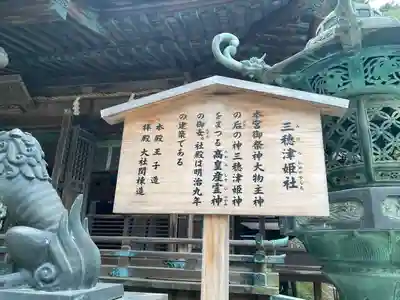 三穂津姫社
本宮御祭神大物主神
の后の神三穂津姫神
をまつる高皇産霊神
の御女。社殿は明治九年
の建築である
本殿 王子造
拝殿 大社関棟造